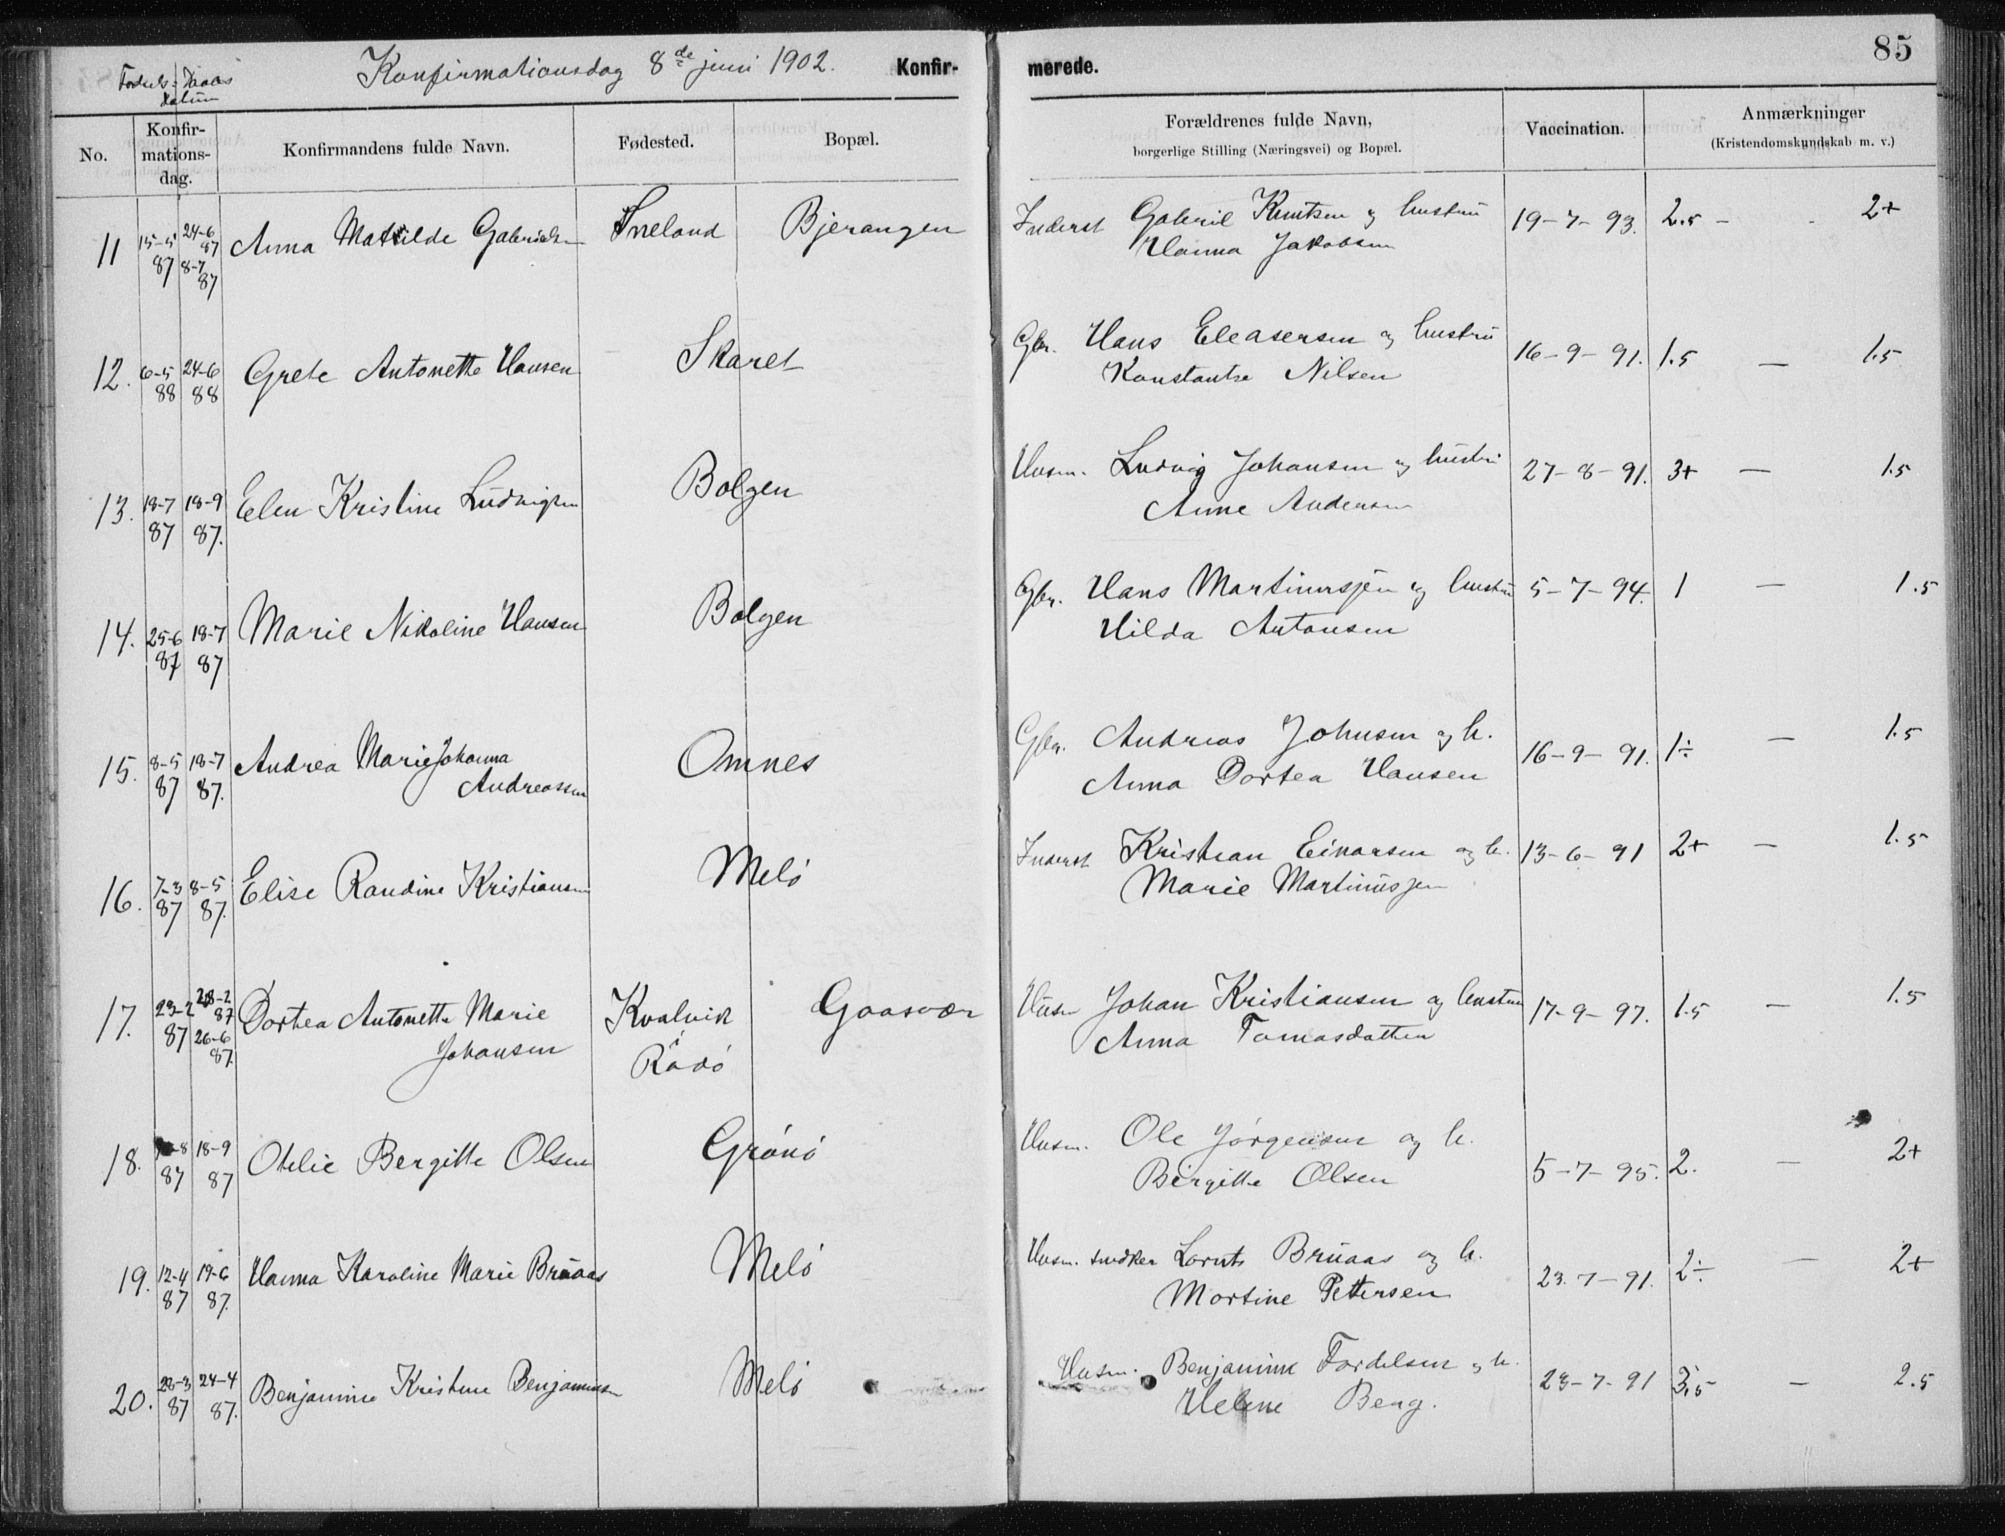 85
Konfirmationsdag 8de juni 1902. Konfir- merede.
Fødsels- Daabs
datum
No. Konfir-
mations-
dag. Konfirmandens fulde Navn. Fødested. Bopæl. Forældrenes fulde Navn,
borgerlige Stilling (Næringsvei) og Bopæl. Vaccination. Anmærkninger
(Kristendomskundskab m. v.)
11 15-5 24-6 Anna Matilde Gabrielsen Bjerangen Inderst Gabriel Knutsen og hustru 19-7-93. 2.5 - 2+
87 87 Hanna Jakobsen
8-7
87
12. 6-5 24-6 Grete Antonette Hansen Skaret Gbr. Hans Eleasersen og hustru 16-9-91. 1.5 — 1.5
88 88 Konstantse Nilsen
13. 18-7 18-9 Elen Kristine Ludvigsen Bolgen Husm. Ludvig Johansen og hustru 27-8-91. 3+ — 1.5
87 87. Anne Andersen
14. 25-6 18-7 Marie Nikoline Hansen Bolgen Gbr. Hans Martinussen og hustru 5-7-94. 1 — 1.5
87 87 Hilda Antonsen
15. 8-5 18-7 Andrea Marie Johanna Omnes Gbr. Andreas Johnsen og h. 16-9-91. 1÷ — 1.5
87 87. Andreassen Anna Dortea Hansen
16. 7-3 8-5 Elise Randine Kristiansen Melö Inderst Kristian Einarsen og h. 13-6-91 2+ — 1.5
87 87. Marie Martinussen
17. 23-2 28-2 Dortea Antonette Marie Kvalvik Gaasvær Husm Johan Kristiansen og hustru 17-9-97. 1.5 — 1.5
87 87 Johansen i Anna Tomasdatter
26-6 Rödö
87.
18. 18-9 Otelie Bergitte Olsen Grönö Husm. Ole Jörgensen og h. 5-7-95. 2. — 2+
87 87 Birgitte Olsen
19. 12-4 19-6 Hanna Karoline Marie Bruaas Melö Husm. snedker Lornts Bruaas og h. 23.7-91. 2÷ — 2+
87 87. Martine Pettersen
20. 28-3 24-4 Benjamine Kristine Benjaminsen Melö Husm. Benjamin Tordelsen og h. 23-7-91 3,5 — 2.5
87 87. Helene Berg.